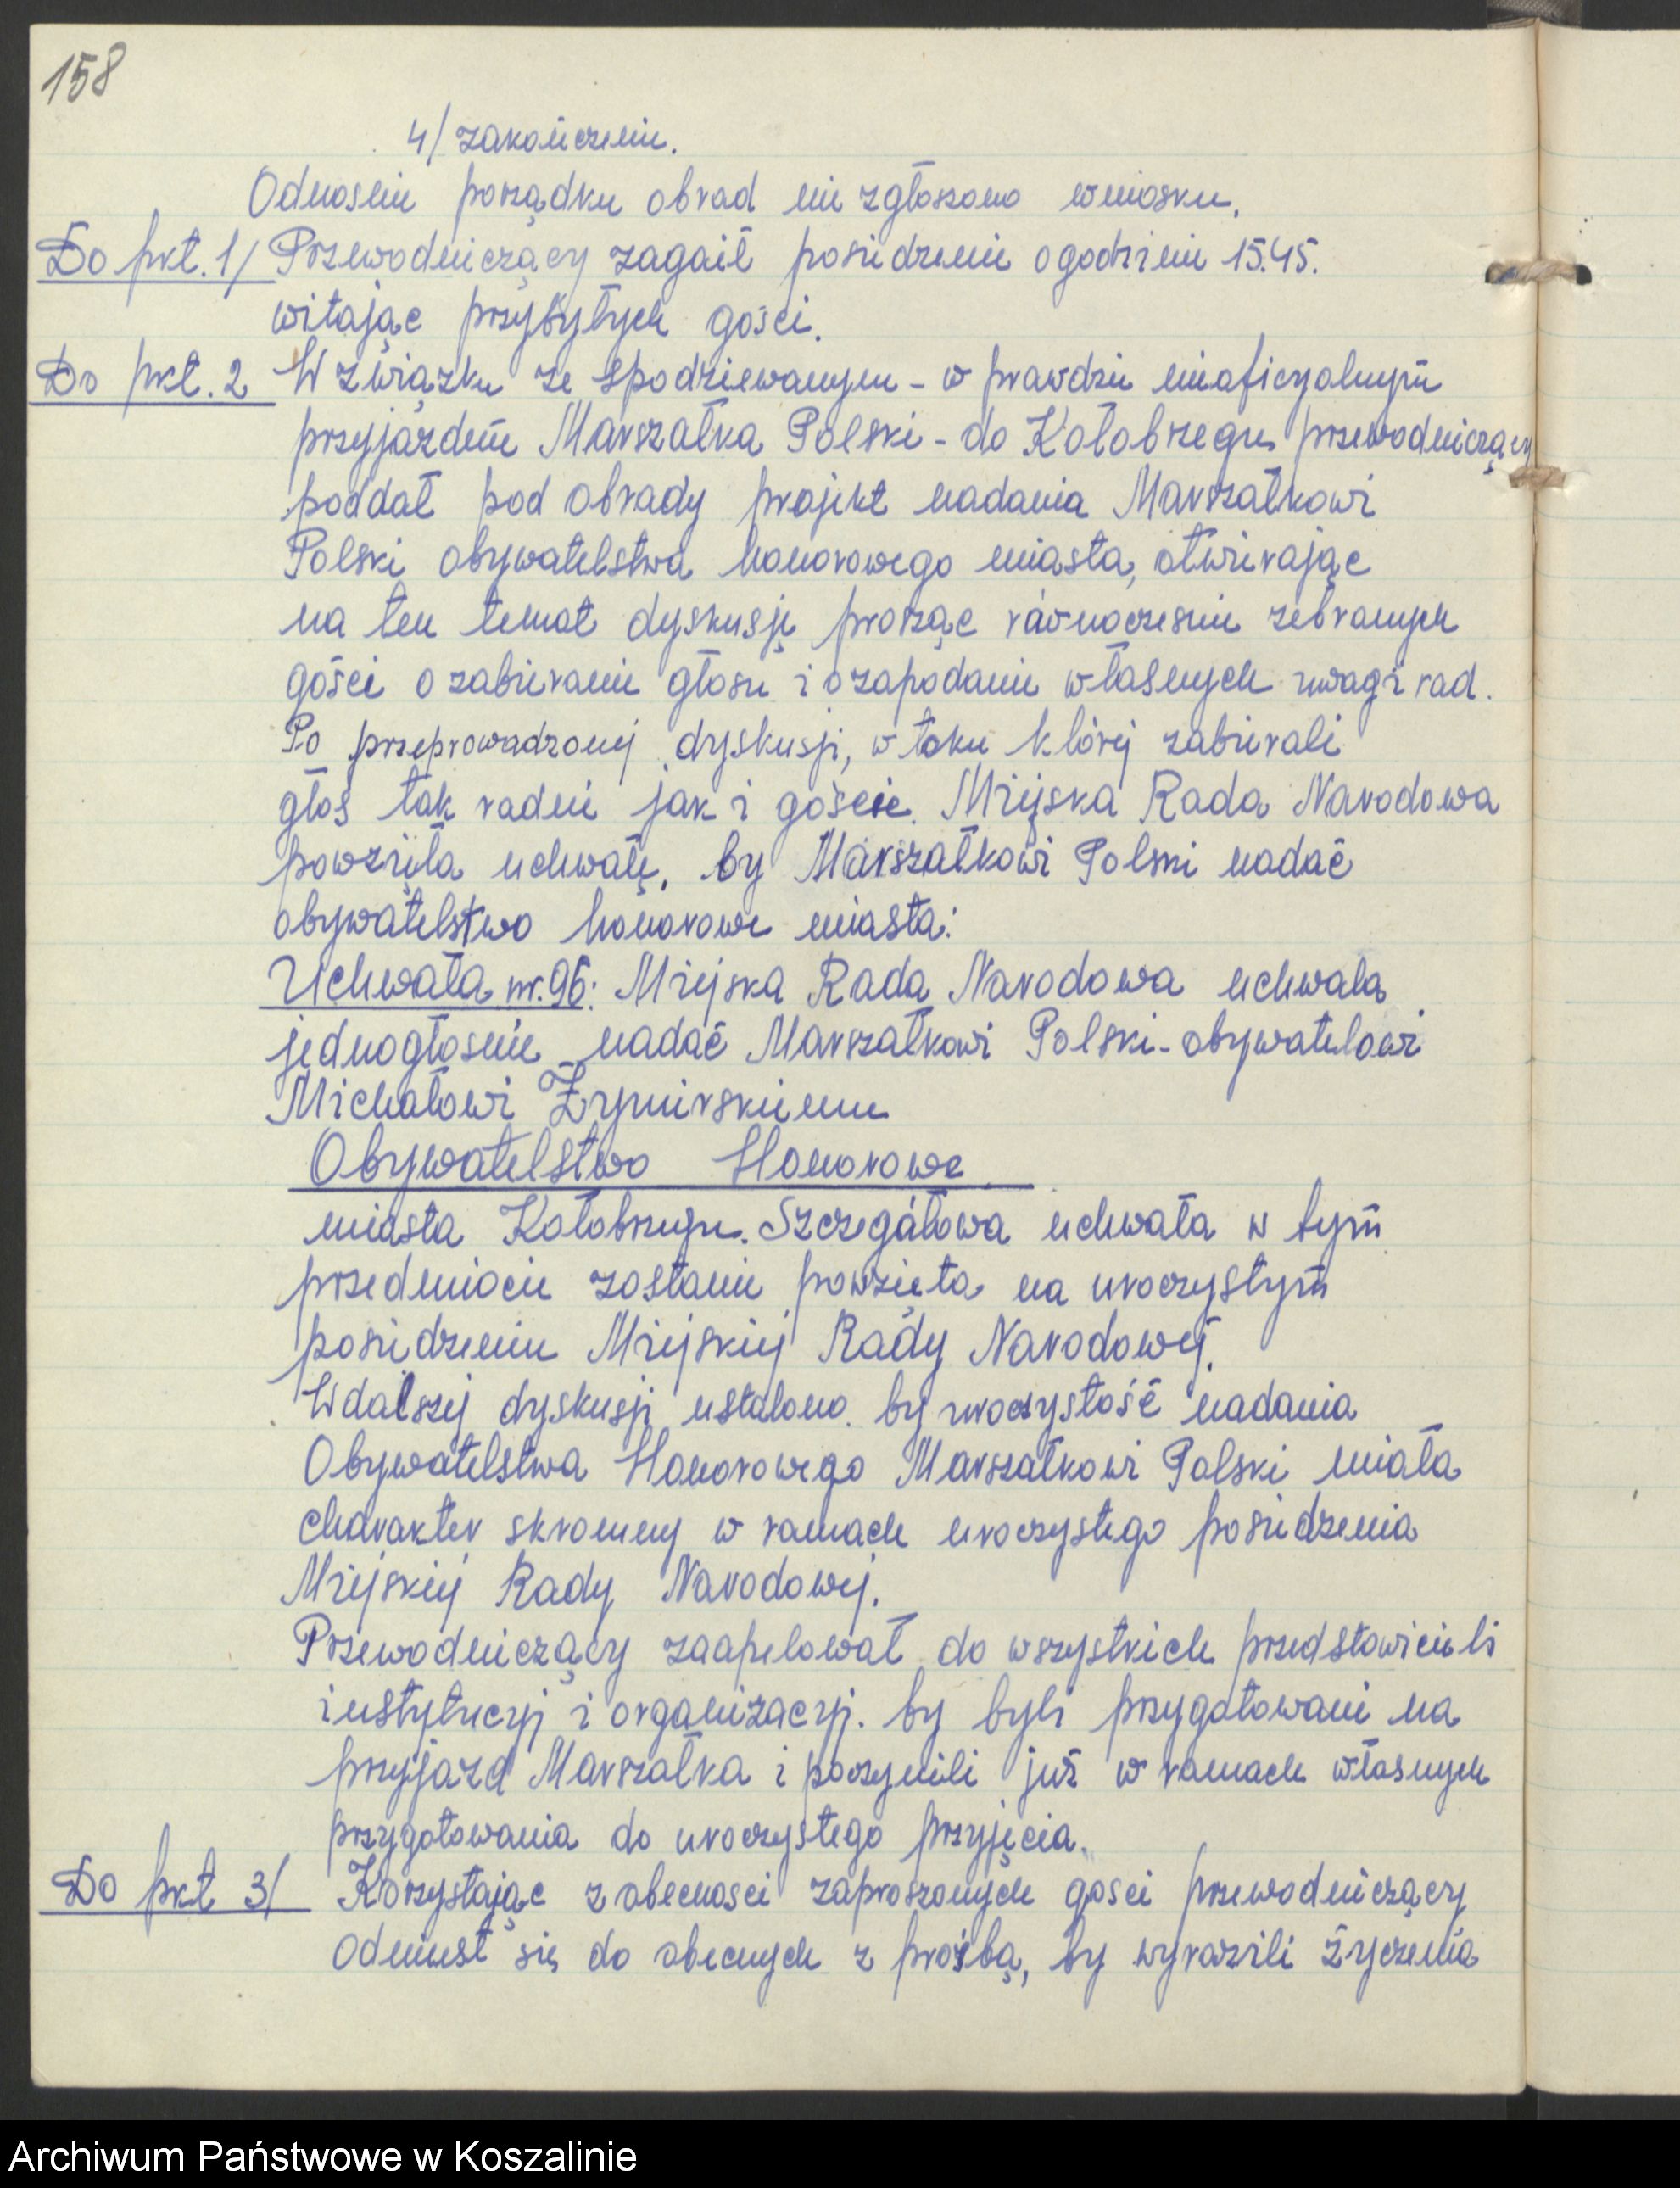 158
4/ zakończenie.
Odnośnie porządku obrad nie zgłoszono wniosku.
Do pkt. 1/ Przewodniczący zagaił posiedzenie o godzinie 15.45.
witając przybyłych gości.
Do pkt. 2 W związku ze spodziewanym - w prawdzie nieoficyalnym
przyjazdem Marszałka Polski - do Kołobrzegu przewodniczący
poddał pod obrady projekt nadania Marszałkowi
Polski obywatelstwa honorowego miasta, otwierając
na ten temat dyskusję prosząc równocześnie zebranych
gości o zabieranie głosu i o zapodanie własnych uwag i rad.
Po przeprowadzonej dyskusji, w toku której zabierali
głos tak radni jak i goście. Miejska Rada Narodowa
powzięła uchwałę, by Marszałkowi Polski nadać
obywatelstwo honorowe miasta:
Uchwała nr. 96: Miejska Rada Narodowa uchwala
jednogłośnie nadać Marszałkowi Polski - obywatelowi
Michałowi Żymierskiemu
Obywatelstwo Honorowe
miasta Kołobrzegu. Szczegółowa uchwała w tym
przedmiocie zostanie powzięta na uroczystym
posiedzeniu Miejskiej Rady Narodowej.
W dalszej dyskusji ustalono by uroczystość nadania
Obywatelstwa Honorowego Marszałkowi Polski miała
charakter skromny w ramach uroczystego posiedzenia
Miejskiej Rady Narodowej.
Przewodniczący zaapelował do wszystkich przedstawicieli
instytucyj i organizacyj. by byli przygotowani na
przyjazd Marszałka i poczynili już w ramach własnych
przygotowania do uroczystego przyjęcia.
Do pkt 3/ Korzystając z obecności zaproszonych gości przewodniczący
odniósł się do obecnych z prośbą, by wyrazili życzenia
Archiwum Państwowe w Koszalinie